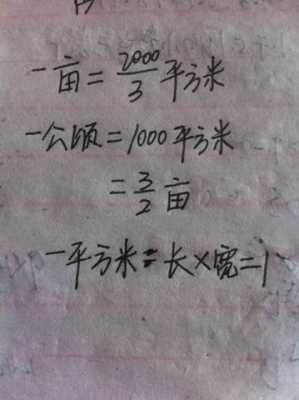 一亩=2000/3平方米
一公顷=1000平方米
=3/2亩
一平方米=长×宽=1